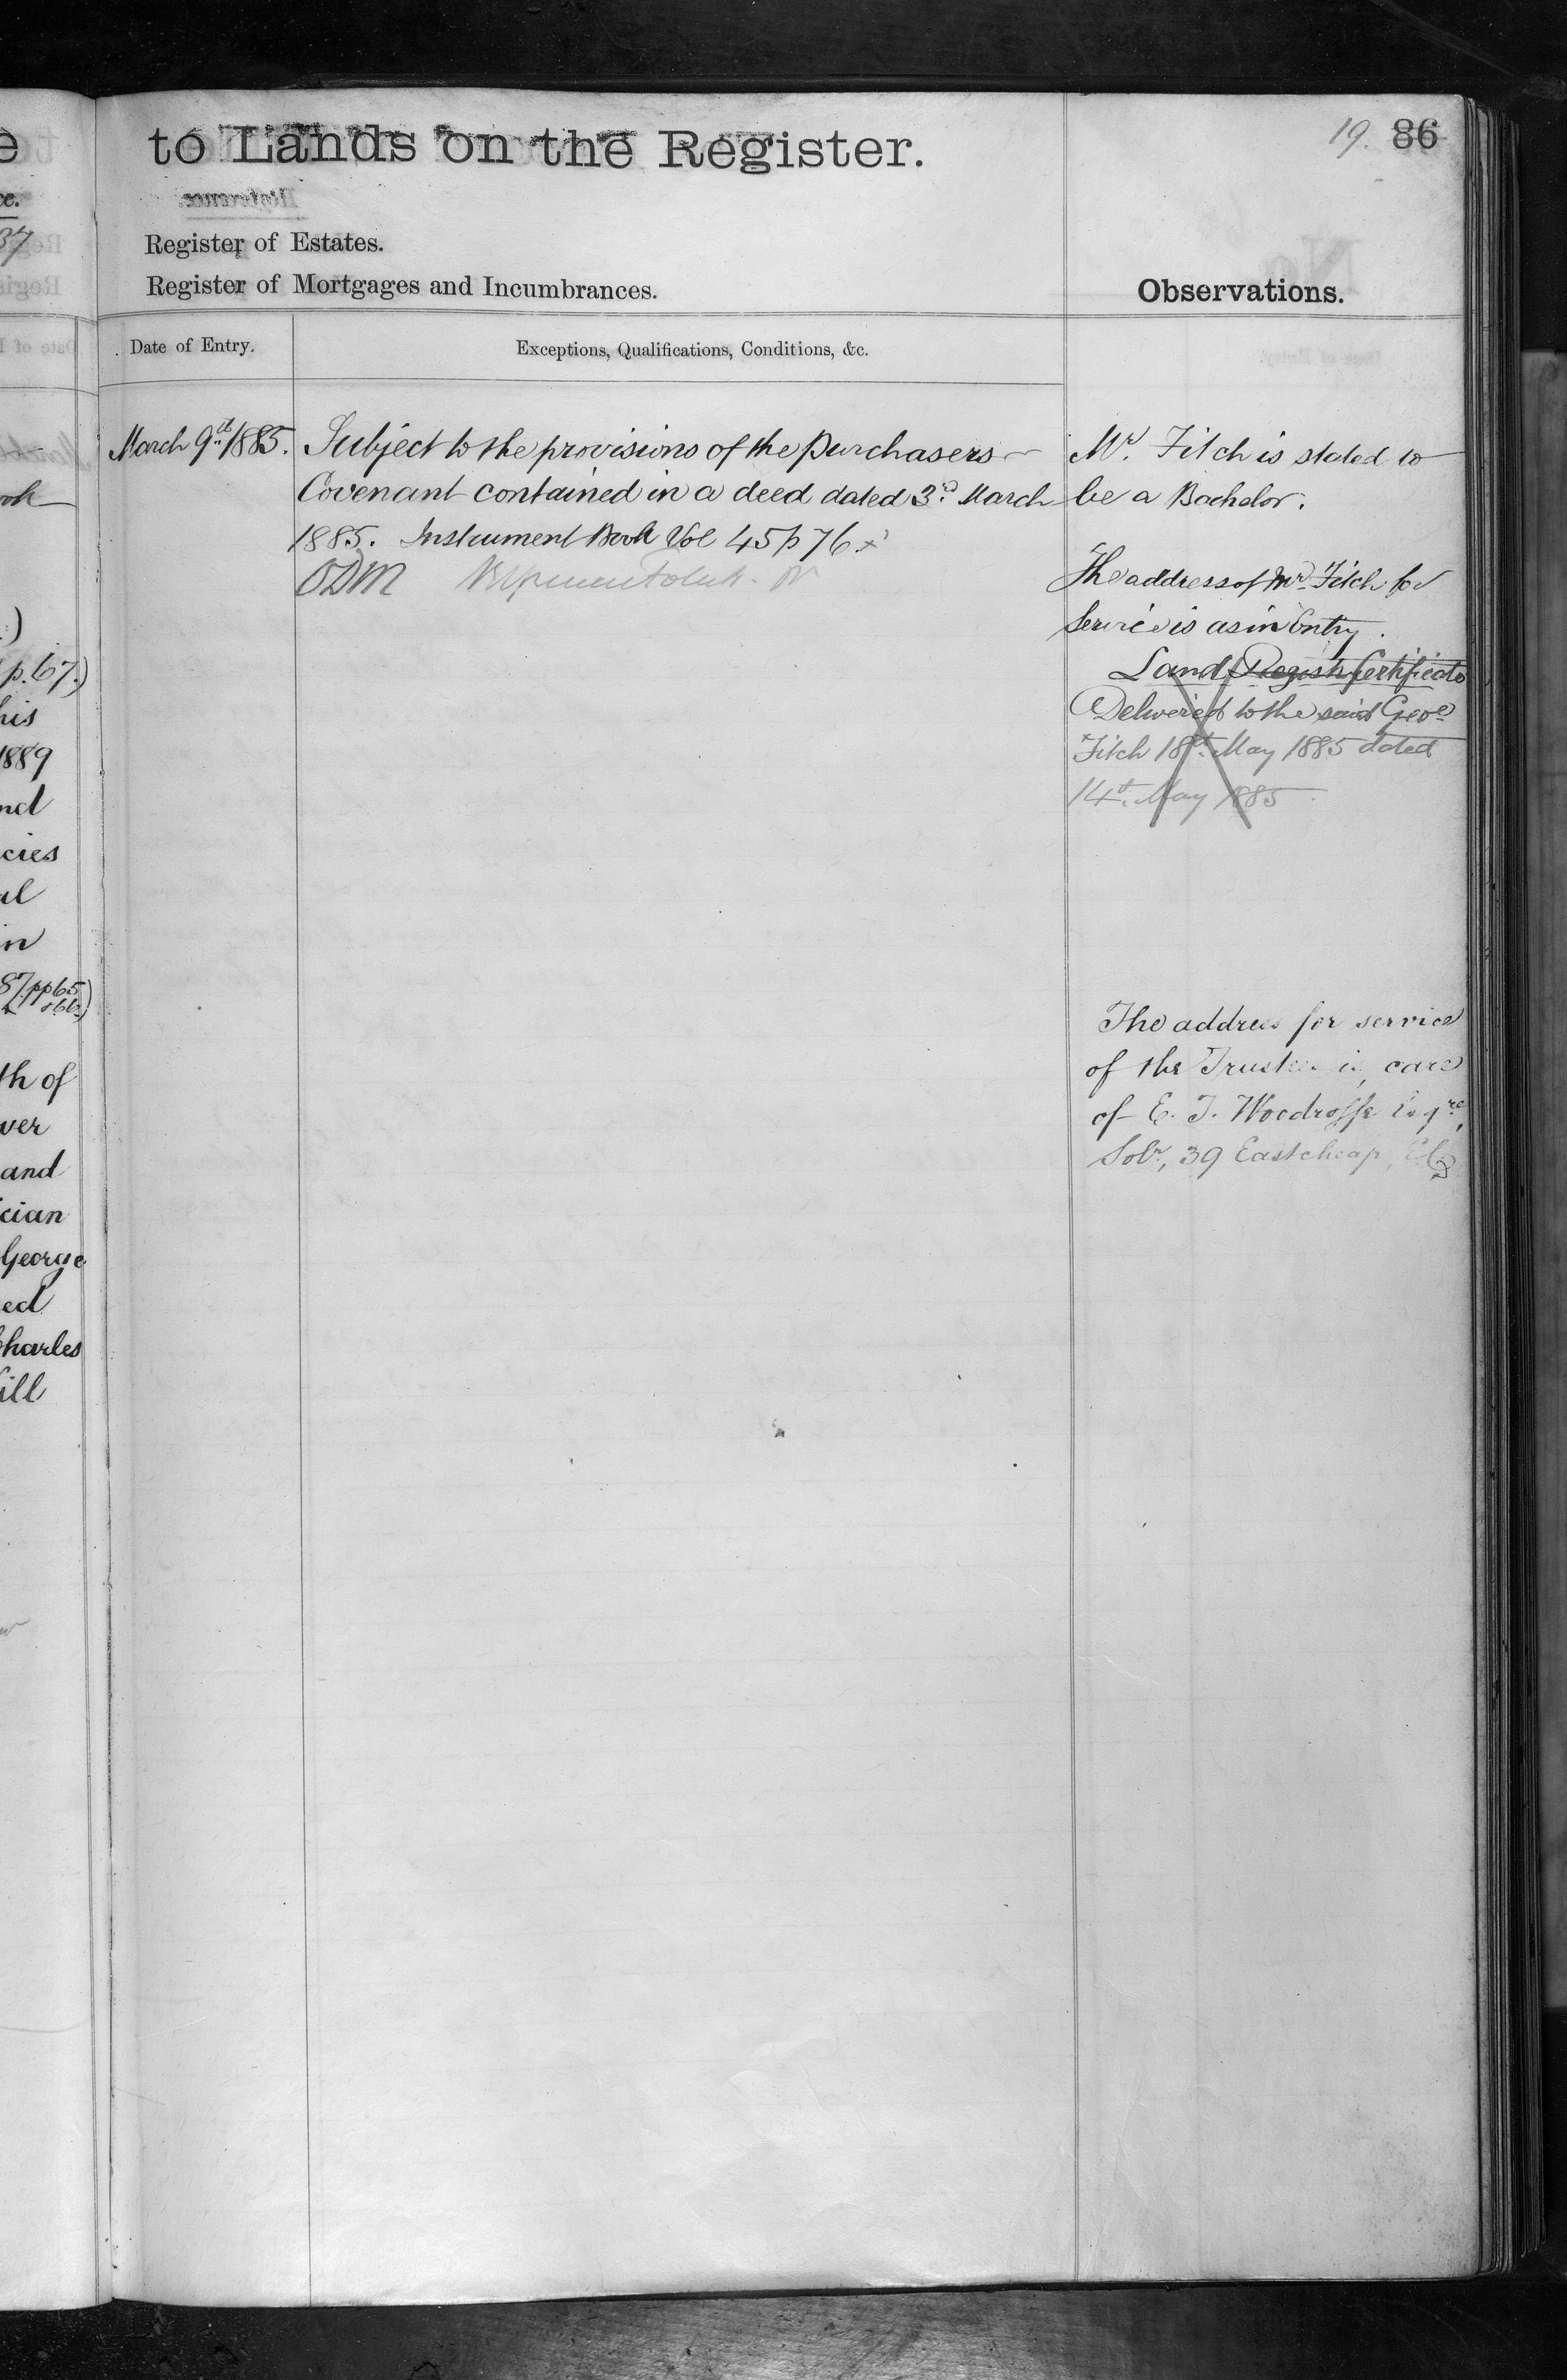 to Lands on the Register.
19. 86
Register of Estates.
Register of Mortgages and Incumbrances.
Observations.
Date of Entry.
Exceptions, Qualifications, Conditions, &c.
March 9th 1885.
Subject to the provisions of the Purchasers
Covenant contained in a deed dated 3d March
1885. Instrument Book Vol 45 p 76 x
ODM
Mr. Fitch is stated to
be a Bachelor.
The address of Mr Fitch for
Service is as in Entry.
Land Certificate
Delivered to the said Geoe
Fitch 18th May 1885 dated
14th May 1885
The address for service
of the Trustees is, care
of E. J. Woodroffe Esqre,
Solr, 39 Eastcheap, EC
p. 67.)
his
1889
and
cies
al
in
87 pp 65
& 66)
th of
ver
and
cian
George
ed
Charles
ill